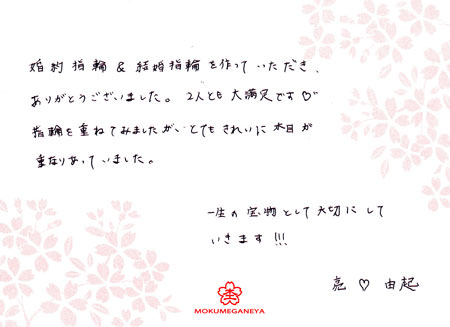 婚約指輪&結婚指輪を作っていただき、
ありがとうございました。2人とも大満足です♡
指輪を重ねてみましたが、とてもきれいに木目が
重なりあっていました。
一生の宝物として大切にして
いきます!!!
亮 ♡ 由起
MOKUMEGANEYA